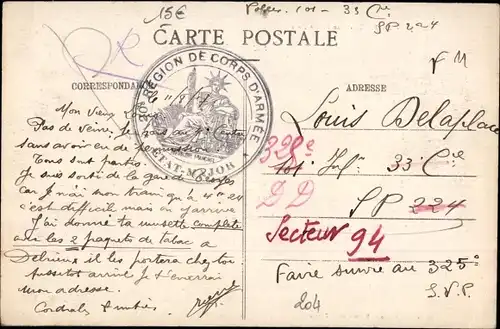 15€
33 Cie
SP 224
CARTE POSTALE
CORRESPONDAN
ADRESSE
20e RÉGION DE CORPS D'ARMÉE
ÉTAT-MAJOR
Mon Vieux
Pas de veine, je pars au
sans avoir eu de permission
Tous sont partis.
Je suis sorti de la gare
car j'ai mon train qu'à 4h 24
c'est difficile mais on y arrive
J'ai donné ta musette complète
avec les 2 paquets de tabac à
Delrieux il les portera chez toi
Aussitôt arrivé je t'enverrai
mon adresse.
Cordiales amitiés
Louis Delaplace
325e
33 Cie
DD
SP 224
Secteur 94
Faire suivre au 325e
S.V.P.
204